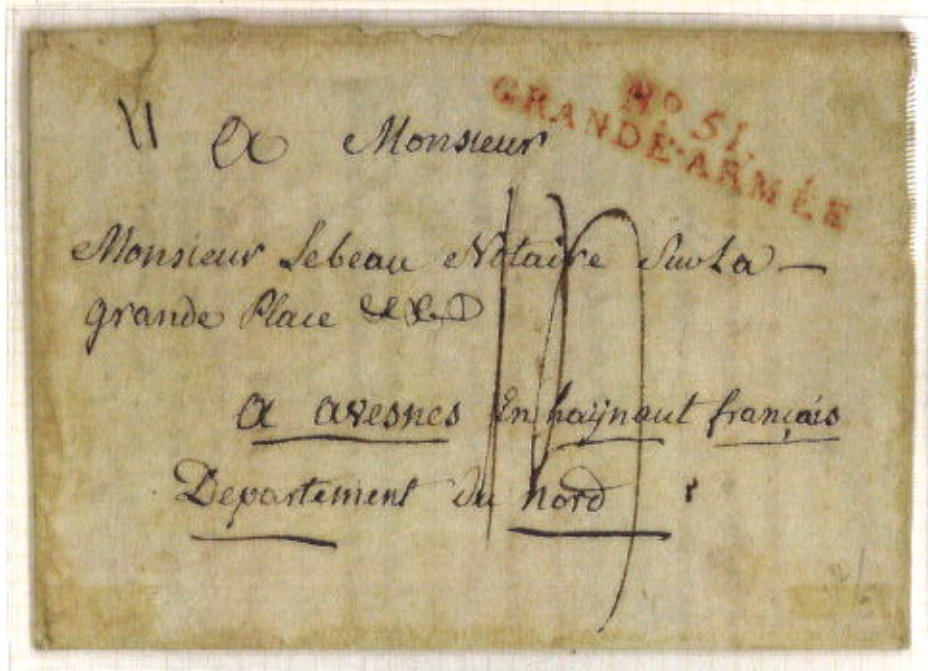 No 51.
GRANDE-ARMÉE
a Monsieur
Monsieur Lebeau Notaire Sur La —
grande Place
a avesnes En haÿnaut français
Departement du nord